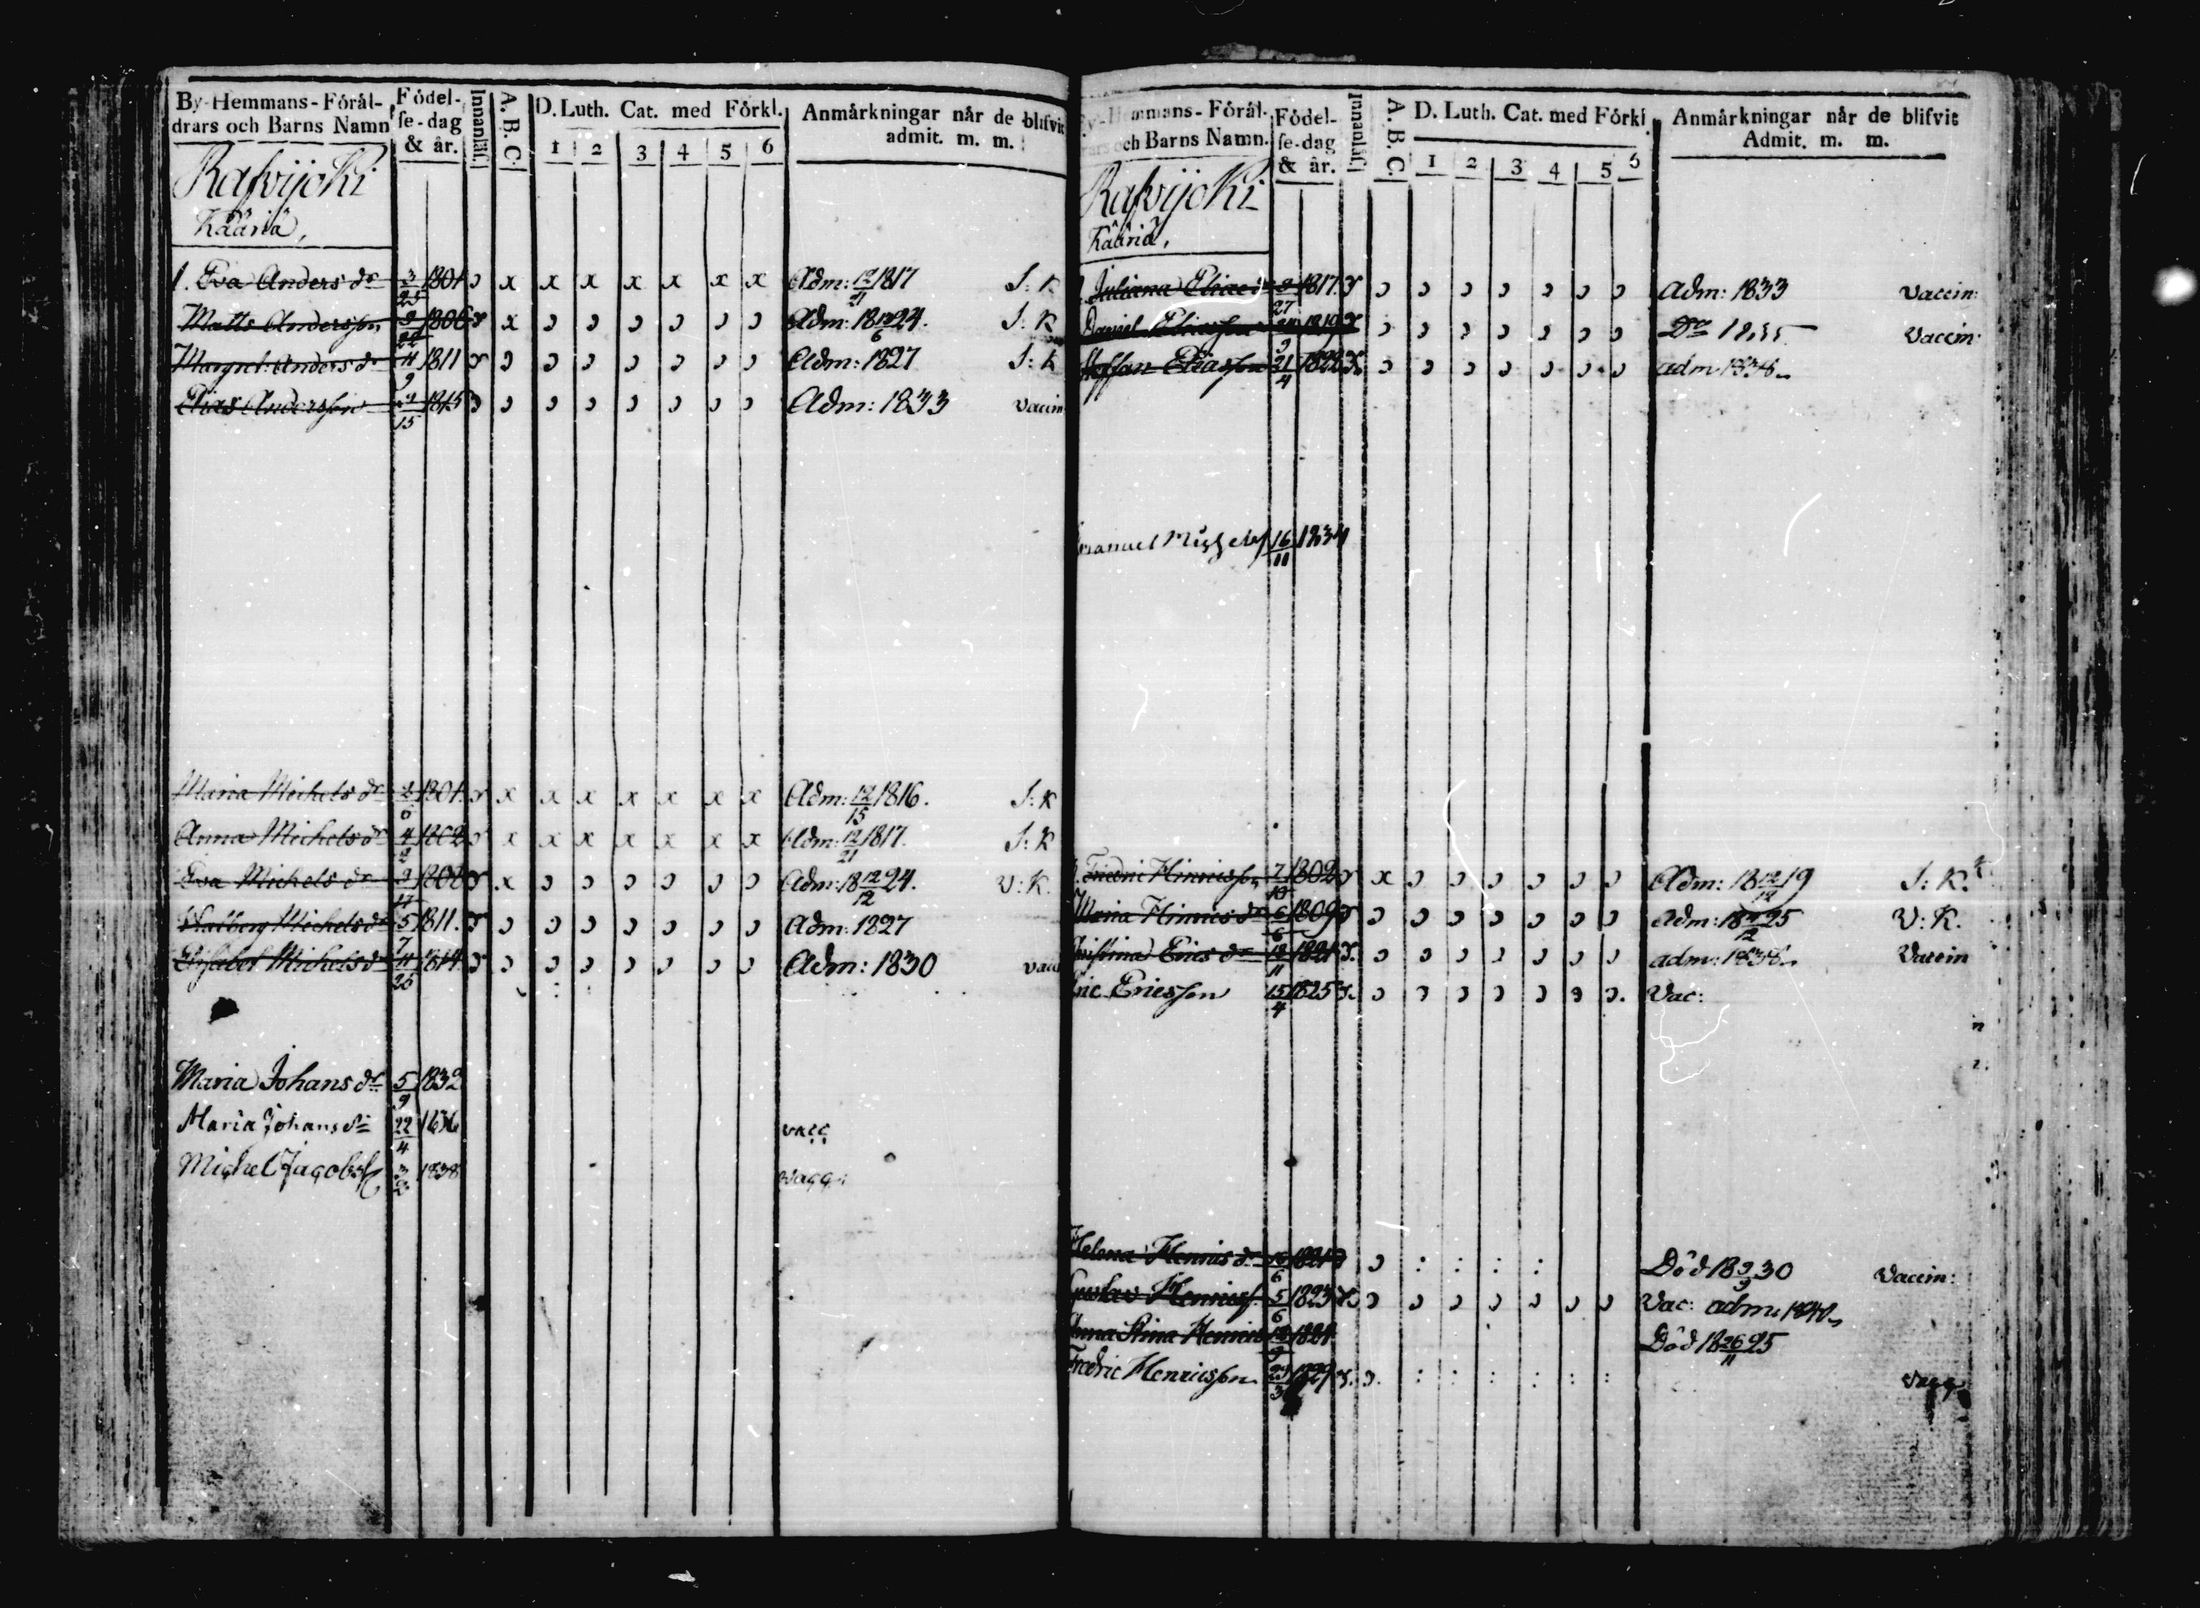 By-Hemmans-Förål-
drars och Barns Namn
Födel-
se-dag
& år.
Innanläs.
A. B. C.
D. Luth. Cat. med Förkl.
1 2 3 4 5 6
Anmärkningar når de blifvit
admit. m. m.
Rafvijoki
Kääriä,
1. Eva Anders dr 3/25 1801 x x x x x x x Adm: 12/21 1817 S: K
Matts Andersson 9/22 1806 x Adm: 18 12/6 24. S: K
Margret: Anders dr 11/9 1811 Adm: 1827 S: K
Elias Andersson 9/15 1815 Adm: 1833 vaccin
Maria Michels dr 2/6 1801 x x x x x x x Adm: 12/15 1816. S: K
Anna Michels dr 4/2 1802 x x x x x x x Adm: 12/21 1817. S: K
Eva Michels dr x Adm: 18 12/12 24. V: K.
Walberg Michels dr 5/7 1811. Adm: 1827
Elisabet Michels dr 11/26 1814 Adm: 1830 vacc
Maria Johans dr 5/9 1832
Maria Johans dr 22/4 vacc
Michel Jacobss 3/2 1838 vacc:
By-Hemmans-Förål-
drars och Barns Namn.
Födel-
se-dag
& år.
Innanläs.
A. B. C.
D. Luth. Cat. med Förkl
1 2 3 4 5 6
Anmärkningar når de blifvit
Admit. m. m.
Rafvijoki
Kääriä,
Juliana Elias dr 1817. Adm: 1833 vaccin:
Daniel Eliasson 1819 Do 1835 vaccin:
Steffan Eliasson 21/4 1822 adm 1838
Emanuel Michelss 16/11 1834
Fredric Hinricsson 7/10 1802 x Adm: 18 12/12 19 S: K.
Maria Hinrics dr 6/6 1809 Adm: 18 12/12 25 V: K.
Christina Erics dr 12/11 1821 adm: 1838 Vaccin
Eric Ericsson 15/4 1825 Vac:
Helena Henrics dr 1821 Död 18 9/9 30 Vaccin:
Gustav Henricss. 5/6 1823 Vac: adm: 1840
Anna Stina Henrics 1824 Död 18 26/11 25
Fredric Henricsson 29/3 1827 vacc